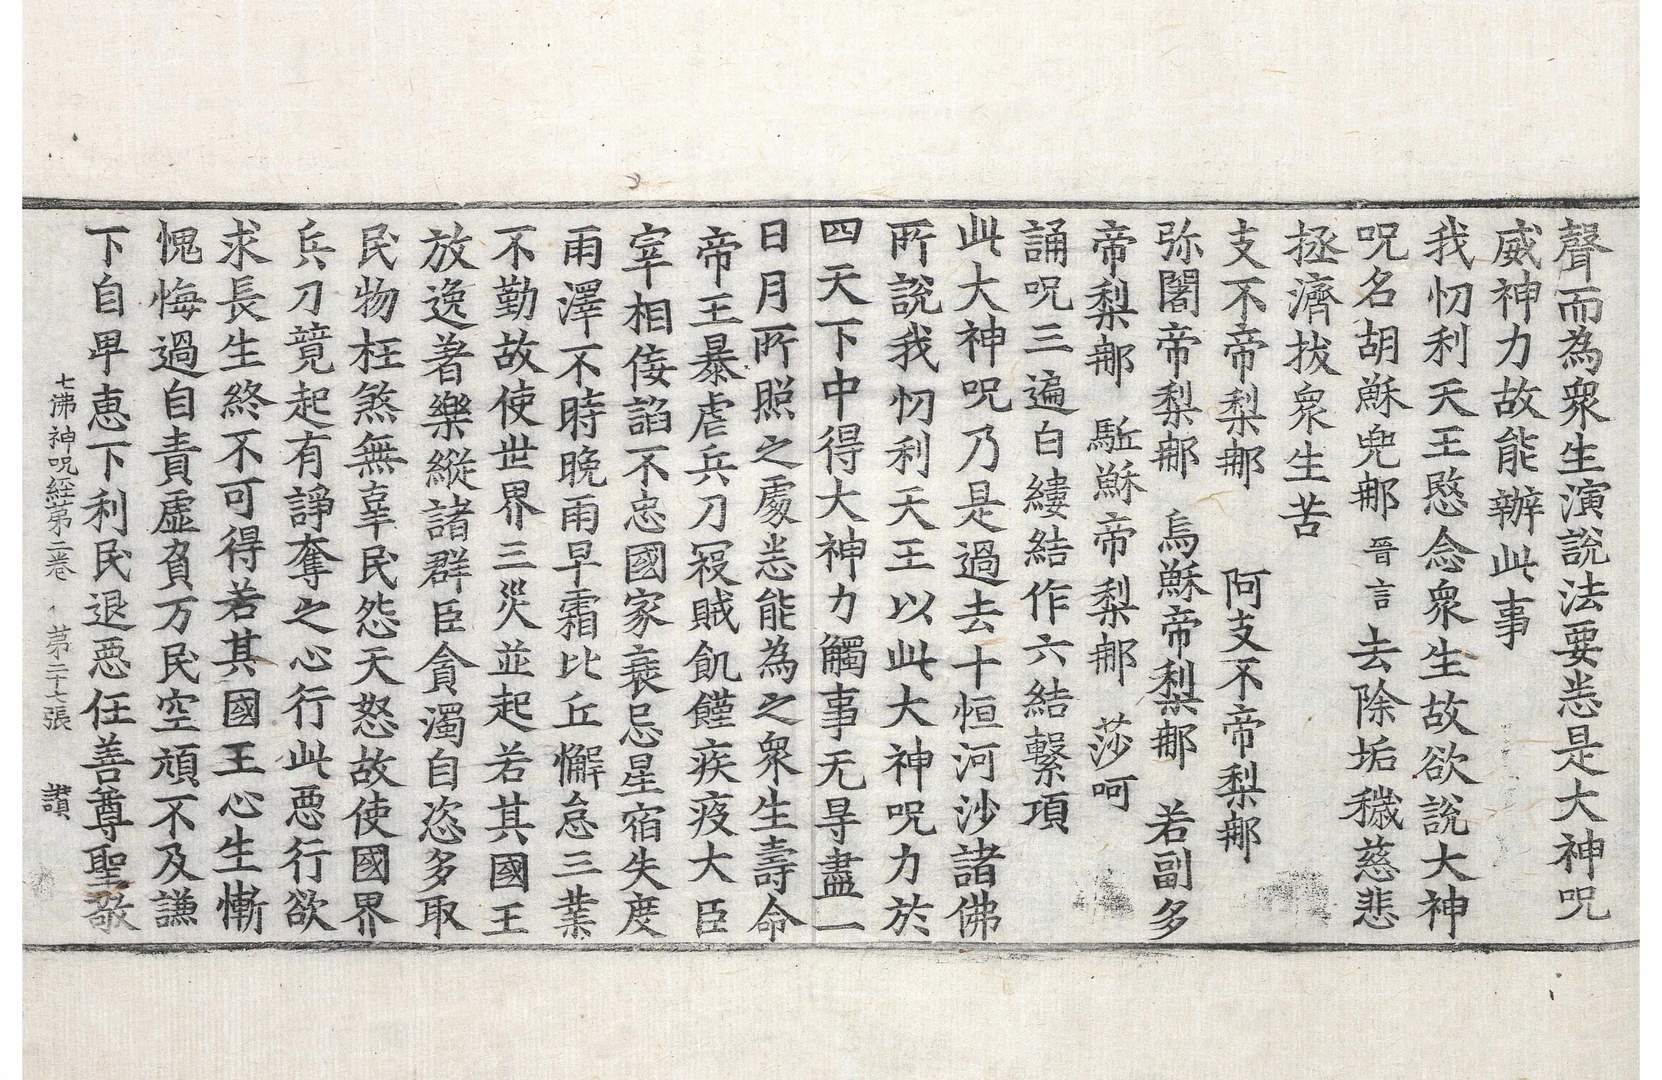 聲而為衆生演說法要悉是大神呪
威神力故能辦此事
我忉利天王愍念衆生故欲說大神
呪名胡穌兜那 晉言 去除垢穢慈悲
拯濟拔衆生苦
支不帝梨那 阿支不帝梨那
弥闍帝梨那 烏穌帝梨那 若副多
帝梨那 䭾穌帝梨那 莎呵
誦呪三遍白縷結作六結繫項
此大神呪乃是過去十恒河沙諸佛
所說我忉利天王以此大神呪力於
四天下中得大神力觸事无㝵盡一
日月所照之處悉能為之衆生壽命
帝王暴虐兵刀冦賊飢饉疾疫大臣
宰相侫諂不忠國家衰忌星宿失度
雨澤不時晚雨早霜比丘懈怠三業
不勤故使世界三災並起若其國王
放逸著樂縱諸群臣貪濁自恣多取
民物枉煞無辜民怨天怒故使國界
兵刀競起有諍奪之心行此惡行欲
求長生終不可得若其國王心生慚
愧悔過自責虛負万民空頑不及謙
下自卑恵下利民退惡任善尊聖敬
七佛神呪経第二卷 第二十七張 讃